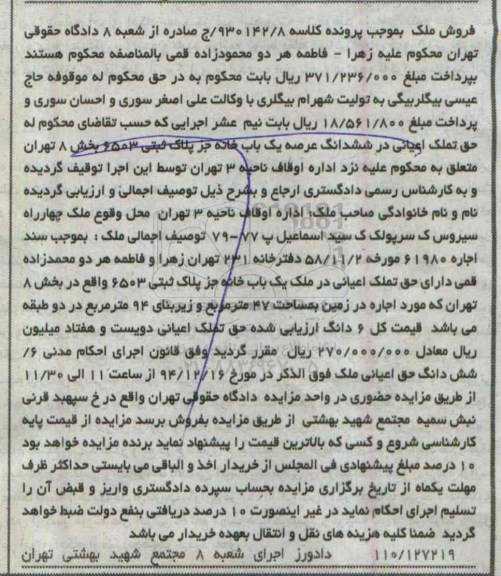 فروش ملک بموجب پرونده کلاسه ۹۳۰۱۴۲/۸/ج صادره از شعبه ۸ دادگاه حقوقی
تهران محکوم علیه زهرا - فاطمه هر دو محمودزاده قمی بالمناصفه محکوم هستند
بپرداخت مبلغ ۳۷۱/۲۳۶/۰۰۰ ریال بابت محکوم به در حق محکوم له موقوفه حاج
عیسی بیگلربیگی به تولیت شهرام بیگلری با وکالت علی اصغر سوری و احسان سوری و
پرداخت مبلغ ۱۸/۵۶۱/۸۰۰ ریال بابت نیم عشر اجرایی که حسب تقاضای محکوم له
حق تملک اعیانی در ششدانگ عرصه یک باب خانه جز پلاک ثبتی ۶۵۰۳ بخش ۸ تهران
متعلق به محکوم علیه نزد اداره اوقاف ناحیه ۳ تهران توسط این اجرا توقیف گردیده
و به کارشناس رسمی دادگستری ارجاع و بشرح ذیل توصیف اجمالی و ارزیابی گردیده
نام و نام خانوادگی صاحب ملک: اداره اوقاف ناحیه ۳ تهران محل وقوع ملک چهارراه
سیروس ک سرپولک ک سید اسماعیل پ ۷۷-۷۹ توصیف اجمالی ملک : بموجب سند
اجاره ۶۱۹۸۰ مورخه ۵۸/۱۱/۲ دفترخانه ۲۳۱ تهران زهرا و فاطمه هر دو محمدزاده
قمی دارای حق تملک اعیانی در ملک یک باب خانه جز پلاک ثبتی ۶۵۰۳ واقع در بخش ۸
تهران که مورد اجاره در زمین بمساحت ۴۷ مترمربع و زیربنای ۹۴ مترمربع در دو طبقه
می باشد قیمت کل ۶ دانگ ارزیابی شده حق تملک اعیانی دویست و هفتاد میلیون
ریال معادل ۲۷۰/۰۰۰/۰۰۰ ریال مقرر گردید وفق قانون اجرای احکام مدنی ۶/
شش دانگ حق اعیانی ملک فوق الذکر در مورخ ۹۴/۱۲/۱۶ از ساعت ۱۱ الی ۱۱/۳۰
از طریق مزایده حضوری در واحد مزایده دادگاه حقوقی تهران واقع در خ سپهبد قرنی
نبش سمیه مجتمع شهید بهشتی از طریق مزایده بفروش برسد مزایده از قیمت پایه
کارشناسی شروع و کسی که بالاترین قیمت را پیشنهاد نماید برنده مزایده خواهد بود
۱۰ درصد مبلغ پیشنهادی فی المجلس از خریدار اخذ و الباقی می بایستی حداکثر ظرف
مهلت یکماه از تاریخ برگزاری مزایده بحساب سپرده دادگستری واریز و قبض آن را
تسلیم اجرای احکام نماید در غیر اینصورت ۱۰ درصد دریافتی بنفع دولت ضبط خواهد
گردید ضمنا کلیه هزینه های نقل و انتقال بعهده خریدار می باشد
۱۱۰/۱۲۷۲۱۹ دادورز اجرای شعبه ۸ مجتمع شهید بهشتی تهران